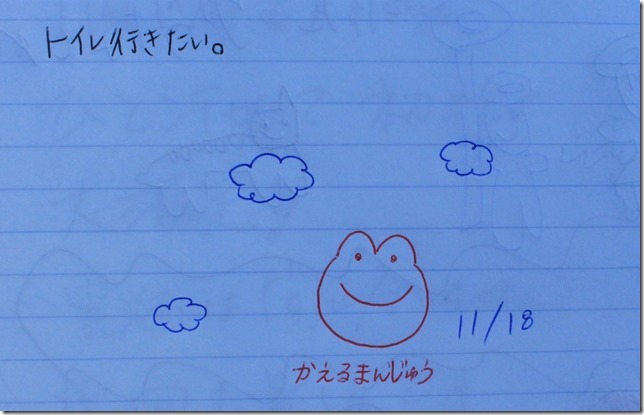 トイレ行きたい。
11/18
かえるまんじゅう